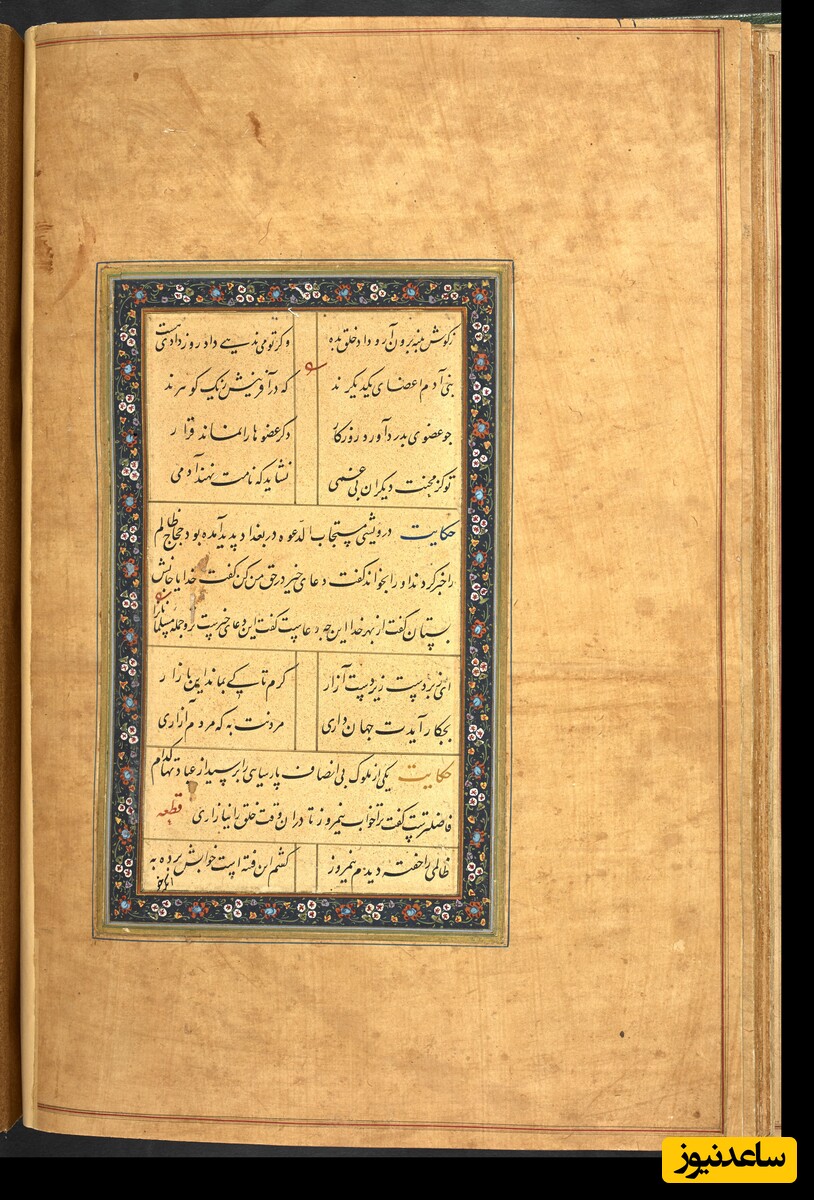 زکوش پنبه برون آر و داد خلق بده وکر تو می ندهی داد روز دادی هست
بنی آدم اعضای یکدیکرند که در آفرینش ز یک کوهرند
چو عضوی بدرد آورد روزکار دکر عضوها را نماند قرار
تو کز محنت دیکران بی غمی نشاید که نامت نهند آدمی
حکایت درویشی مستجاب الدعوه در بغداد پدید آمده بود حجاج ظالم
را خبر کردند او را بخواند کفت دعای خیر در حق من کن کفت خدایا جانش
بستان کفت از بهر خدا این چه دعاست کفت این دعای خیرست تو و جمله مسلمانانرا
ای زبردست زیردست آزار کرم تا کی بماند این بازار
بچکار آیدت جهان داری مردنت به که مردم آزاری
حکایت یکی از ملوک بی انصاف پارسایی را پرسید از عبادتها کدام
فاضلترست کفت ترا خواب نیمروز تا در ان وقت خلق را نیازاری قطعه
ظالمی را خفته دیدم نیمروز کفتم این فتنه است خوابش برده به
ساعدنیوز